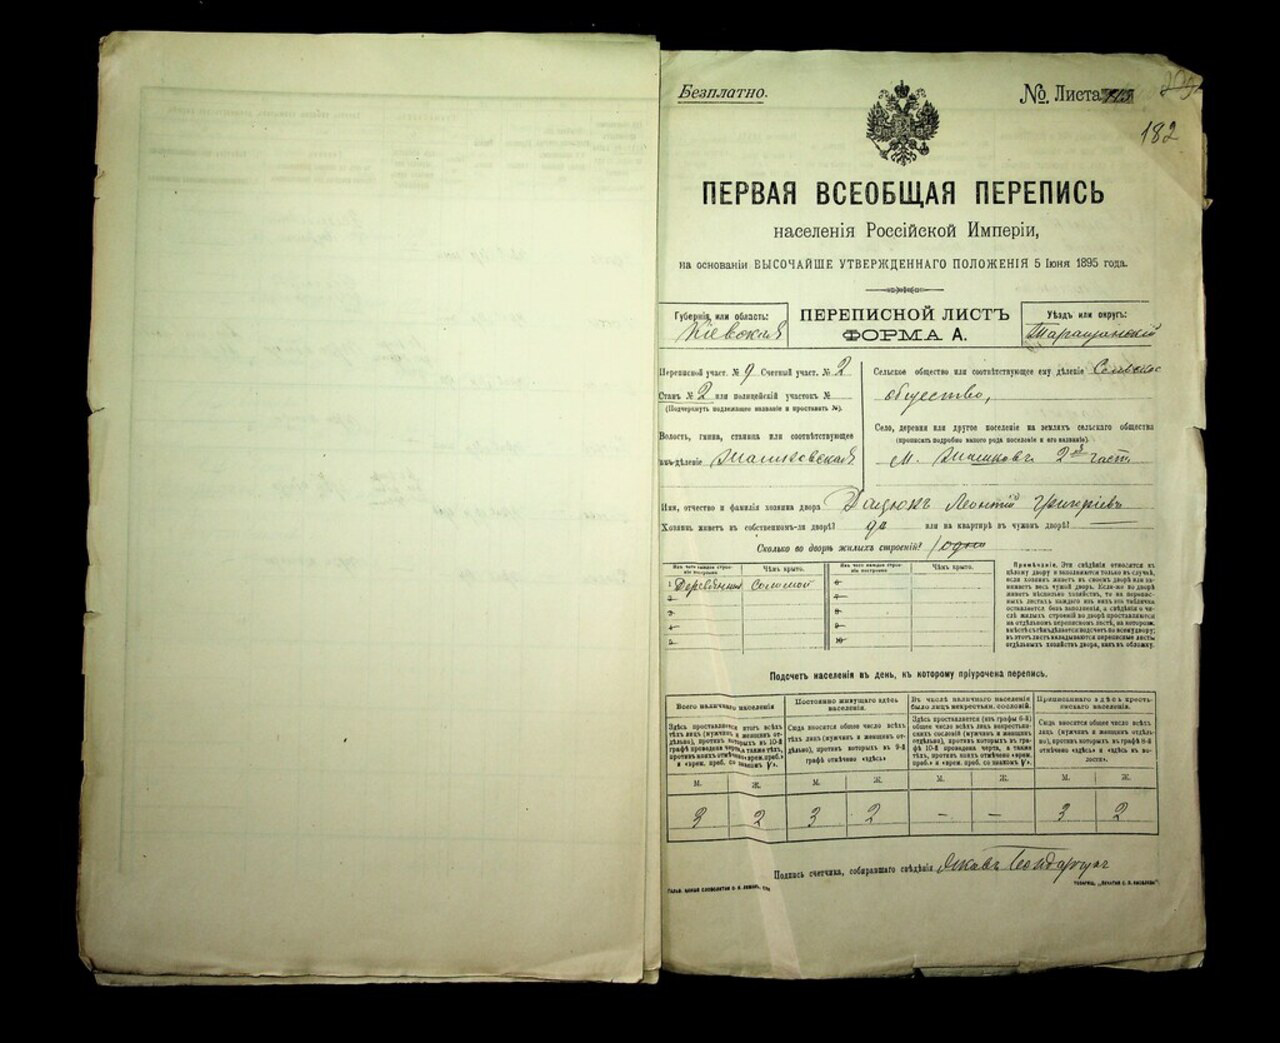 Безплатно.
№ Листа
182
ПЕРВАЯ ВСЕОБЩАЯ ПЕРЕПИСЬ
населенія Россійской Имперіи,
на основаніи ВЫСОЧАЙШЕ УТВЕРЖДЕННАГО ПОЛОЖЕНІЯ 5 Іюня 1895 года.
Губернія, или область:
Кіевская
ПЕРЕПИСНОЙ ЛИСТЪ
ФОРМА А.
Уѣздъ или округъ:
Таращанскій
Переписной участ. № 9 Счетный участ. № 2
Станъ № 2 или полицейскій участокъ №
(Подчеркнуть подлежащее названіе и проставить №).
Волость, гмина, станица или соотвѣтствующее
имъ дѣленіе
Сельское общество или соотвѣтствующее ему дѣленіе Сельское
общество,
Село, деревня или другое поселеніе на земляхъ сельскаго общества
(прописать подробно какого рода поселеніе и его названіе).
м. 2й части
Имя, отчество и фамилія хозяина двора Дацюкъ Леонтій Григоріевъ
Хозяинъ живетъ въ собственномъ-ли дворѣ? да или на квартирѣ въ чужомъ дворѣ? —
Сколько во дворѣ жилыхъ строеній? 1 одно
Изъ чего каждое строеніе построено Чѣмъ крыто. Изъ чего каждое строеніе построено Чѣмъ крыто.
1 Деревянное Соломой 6
2 7
3 8
4 9
5 10
Примѣчаніе. Эти свѣдѣнія относятся къ
цѣлому двору и заполняются только въ случаѣ,
если хозяинъ живетъ въ своемъ дворѣ или занимаетъ
весь чужой дворъ. Если-же во дворѣ
живетъ нѣсколько хозяйствъ, то на переписныхъ
листахъ каждаго изъ нихъ эта табличка
оставляется безъ заполненія, а свѣдѣнія о числѣ
жилыхъ строеній во дворѣ проставляются
на отдѣльномъ переписномъ листѣ, на которомъ
вмѣстѣ съ тѣмъ дѣлается подсчетъ по всему двору;
въ этотъ листъ вкладываются переписные листы
отдѣльныхъ хозяйствъ двора, какъ въ обложку.
Подсчетъ населенія въ день, къ которому пріурочена перепись.
Всего наличнаго населенія
Здѣсь проставляется итогъ всѣхъ
тѣхъ лицъ (мужчинъ и женщинъ отдѣльно),
противъ которыхъ въ 10-й
графѣ проведена черта, а также тѣхъ,
противъ коихъ отмѣчено «врем. преб.»
и «врем. преб. со знакомъ V».
Постоянно живущаго здѣсь
населенія.
Сюда вносятся общее число всѣхъ
тѣхъ лицъ (мужчинъ и женщинъ отдѣльно),
противъ которыхъ въ 9-й
графѣ отмѣчено «здѣсь»
Въ числѣ наличнаго населенія
было лицъ некрестьян. сословій.
Здѣсь проставляется (изъ графы 6-й)
общее число всѣхъ лицъ некрестьянскихъ
сословій (мужчинъ и женщинъ
отдѣльно), противъ которыхъ въ графѣ
10-й проведена черта, а также
тѣхъ, противъ коихъ отмѣчено «врем.
преб.» и «врем. преб. со знакомъ V».
Приписаннаго здѣсь крестьянскаго
населенія.
Сюда вносятся общее число всѣхъ
лицъ (мужчинъ и женщинъ отдѣльно),
противъ которыхъ въ графѣ 8-й
отмѣчено «здѣсь» и «здѣсь въ волости».
М. Ж. М. Ж. М. Ж. М. Ж.
3 2 3 2 – – 3 2
Подпись счетчика, собиравшаго свѣдѣнія Яковъ